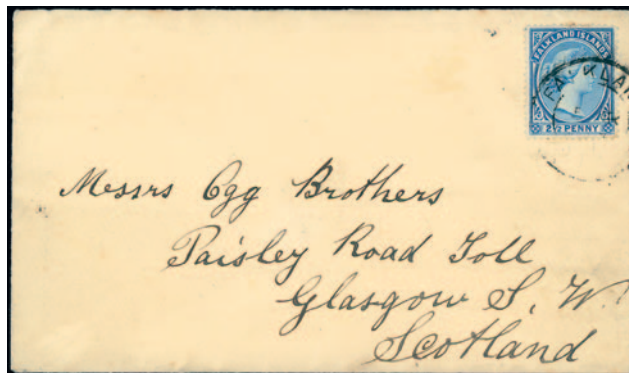 FALKLAND ISLANDS
2½ PENNY
FALKLAN
Messrs Ogg Brothers
Paisley Road Toll
Glasgow S. W.
Scotland